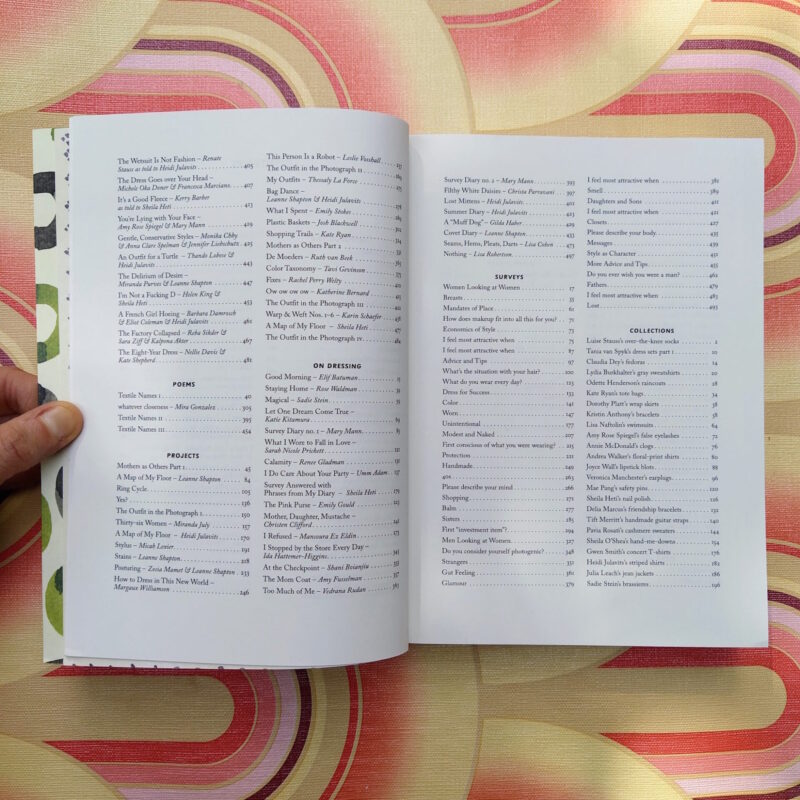 The Wetsuit Is Not Fashion – Renate
Stauss as told to Heidi Julavits 405
The Dress Goes over Your Head –
Michele Oka Doner & Francesca Marciano 407
It's a Good Fleece – Kerry Barber
as told to Sheila Heti 423
You're Lying with Your Face –
Amy Rose Spiegel & Mary Mann 429
Gentle, Conservative Styles – Monika Chhy
& Anna Clare Spelman & Jennifer Liebschutz 425
An Outfit for a Turtle – Thando Lobese &
Heidi Julavits 443
The Delirium of Desire –
Miranda Purves & Leanne Shapton 447
I'm Not a Fucking D – Helen King &
Sheila Heti 453
A French Girl Hoeing – Barbara Damrosch
& Eliot Coleman & Heidi Julavits 461
The Factory Collapsed – Reba Sikder &
Sara Ziff & Kalpona Akter 467
The Eight-Year Dress – Nellie Davis &
Kate Shepherd 481
POEMS
Textile Names I 40
whatever closeness – Mira Gonzalez 305
Textile Names II 395
Textile Names III 454
PROJECTS
Mothers as Others Part 1 45
A Map of My Floor – Leanne Shapton 84
Ring Cycle 105
Yes? 136
The Outfit in the Photograph I 150
Thirty-six Women – Miranda July 157
A Map of My Floor – Heidi Julavits 170
Stylus – Micah Lexier 191
Stains – Leanne Shapton 218
Posturing – Zosia Mamet & Leanne Shapton 233
How to Dress in This New World –
Margaux Williamson 246
This Person Is a Robot – Leslie Vosshall 257
The Outfit in the Photograph II
My Outfits – Thessaly La Force
Bag Dance –
Leanne Shapton & Heidi Julavits
What I Spent – Emily Stokes
Plastic Baskets – Josh Blackwell
Shopping Trails – Kate Ryan
Mothers as Others Part 2
De Moeders – Ruth van Beek
Color Taxonomy – Tavi Gevinson
Fixes – Rachel Perry Welty
Ow ow ow ow – Katherine Bernard
The Outfit in the Photograph III
Warp & Weft Nos. 1–6 – Karin Schaefer
A Map of My Floor – Sheila Heti 477
The Outfit in the Photograph IV 484
ON DRESSING
Good Morning – Elif Batuman
Staying Home – Rose Waldman
Magical – Sadie Stein
Let One Dream Come True –
Katie Kitamura
Survey Diary no. 1 – Mary Mann
What I Wore to Fall in Love –
Sarah Nicole Prickett
Calamity – Renee Gladman
I Do Care About Your Party – Umm Adam
Survey Answered with
Phrases from My Diary – Sheila Heti 175
The Pink Purse – Emily Gould
Mother, Daughter, Mustache –
Christen Clifford
I Refused – Mansoura Ez Eldin
I Stopped by the Store Every Day –
Ida Hattemer-Higgins
At the Checkpoint – Shani Boianjiu
The Mom Coat – Amy Fusselman
Too Much of Me – Vedrana Rudan
Survey Diary no. 2 – Mary Mann 393
Filthy White Daisies – Christa Parravani 397
Lost Mittens – Heidi Julavits 402
Summer Diary – Heidi Julavits 413
A "Muff Dog" – Gilda Haber 429
Covet Diary – Leanne Shapton 431
Seams, Hems, Pleats, Darts – Lisa Cohen 473
Nothing – Lisa Robertson 497
SURVEYS
Women Looking at Women 17
Breasts 35
Mandates of Place 61
How does makeup fit into all this for you? 71
Economics of Style 73
I feel most attractive when 75
I feel most attractive when 87
Advice and Tips 97
What's the situation with your hair? 100
What do you wear every day? 125
Dress for Success
Color
Worn 147
Unintentional 177
Modest and Naked 207
First conscious of what you were wearing? 225
Protection
Handmade 249
40s 263
Please describe your mind 266
Shopping 271
Balm 277
Sisters 285
First "investment item"?
Men Looking at Women 327
Do you consider yourself photogenic? 348
Strangers 351
Gut Feeling 361
Glamour 379
I feel most attractive when 381
Smell 389
Daughters and Sons 401
I feel most attractive when 421
Closets 427
Please describe your body. 435
Messages 439
Style as Character 451
More Advice and Tips 455
Do you ever wish you were a man? 464
Fathers 479
I feel most attractive when 483
Lost 493
COLLECTIONS
Luise Stauss's over-the-knee socks 2
Tania van Spyk's dress sets part 1 10
Claudia Dey's fedoras 14
Lydia Burkhalter's gray sweatshirts
Odette Henderson's raincoats 28
Kate Ryan's tote bags 34
Dorothy Platt's wrap skirts
Kristin Anthony's bracelets
Lisa Naftolin's swimsuits 64
Amy Rose Spiegel's false eyelashes 72
Annie McDonald's clogs 76
Andrea Walker's floral-print shirts
Joyce Wall's lipstick blots 88
Veronica Manchester's earplugs 96
Mae Pang's safety pins 110
Sheila Heti's nail polish 116
Delia Marcus's friendship bracelets 132
Tift Merritt's handmade guitar straps 140
Pavia Rosati's cashmere sweaters 144
Sheila O'Shea's hand-me-downs 154
Gwen Smith's concert T-shirts 176
Heidi Julavits's striped shirts 182
Julia Leach's jean jackets 186
Sadie Stein's brassieres 196